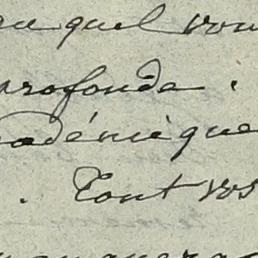 auquel vou
profonde.
cadémique
. Tont vos